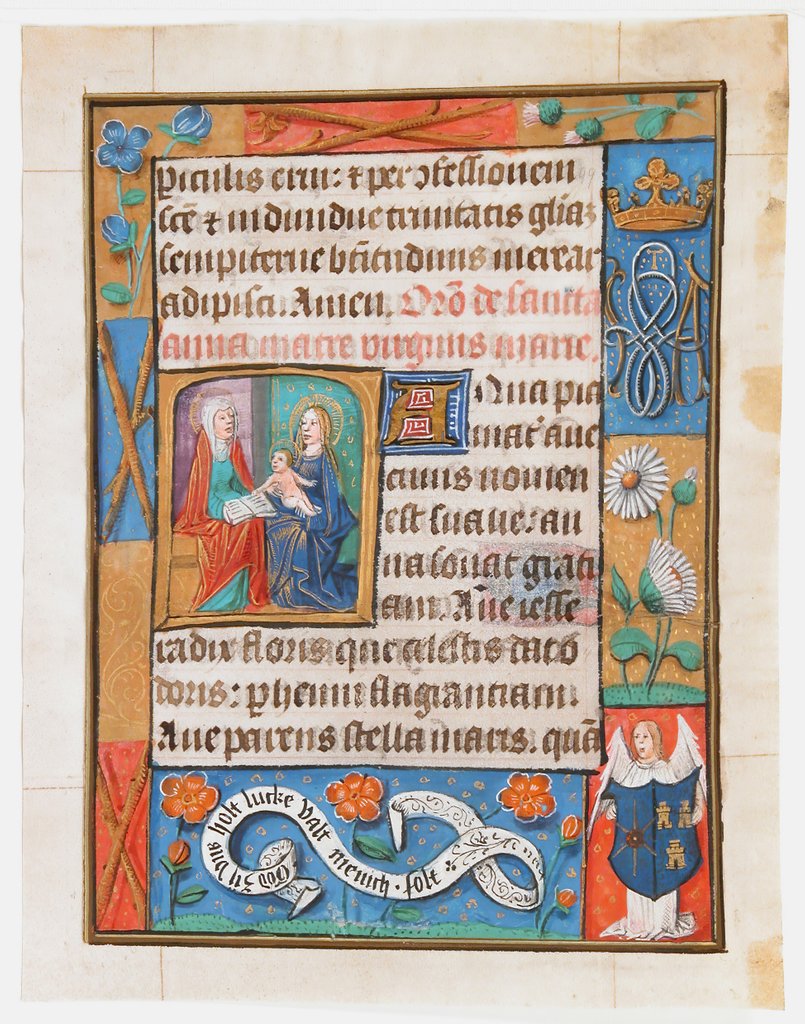 piculis erui: ⁊ per ↄfessionem
scē ⁊ indiuidue trinitatis gliaꝫ
sempiterne btitudinis merear
adipisci. Amen. Orō de sancta
anna matre virginis marie.
Anna pia
mat aue
cuius nomen
est suaue: an
na sonat grati
am. Aue iesse
radix floris que celestis dato
doris: phenni flagrantiam.
Aue parens stella maris. quā
God zij bus holt lucke valt menich folt